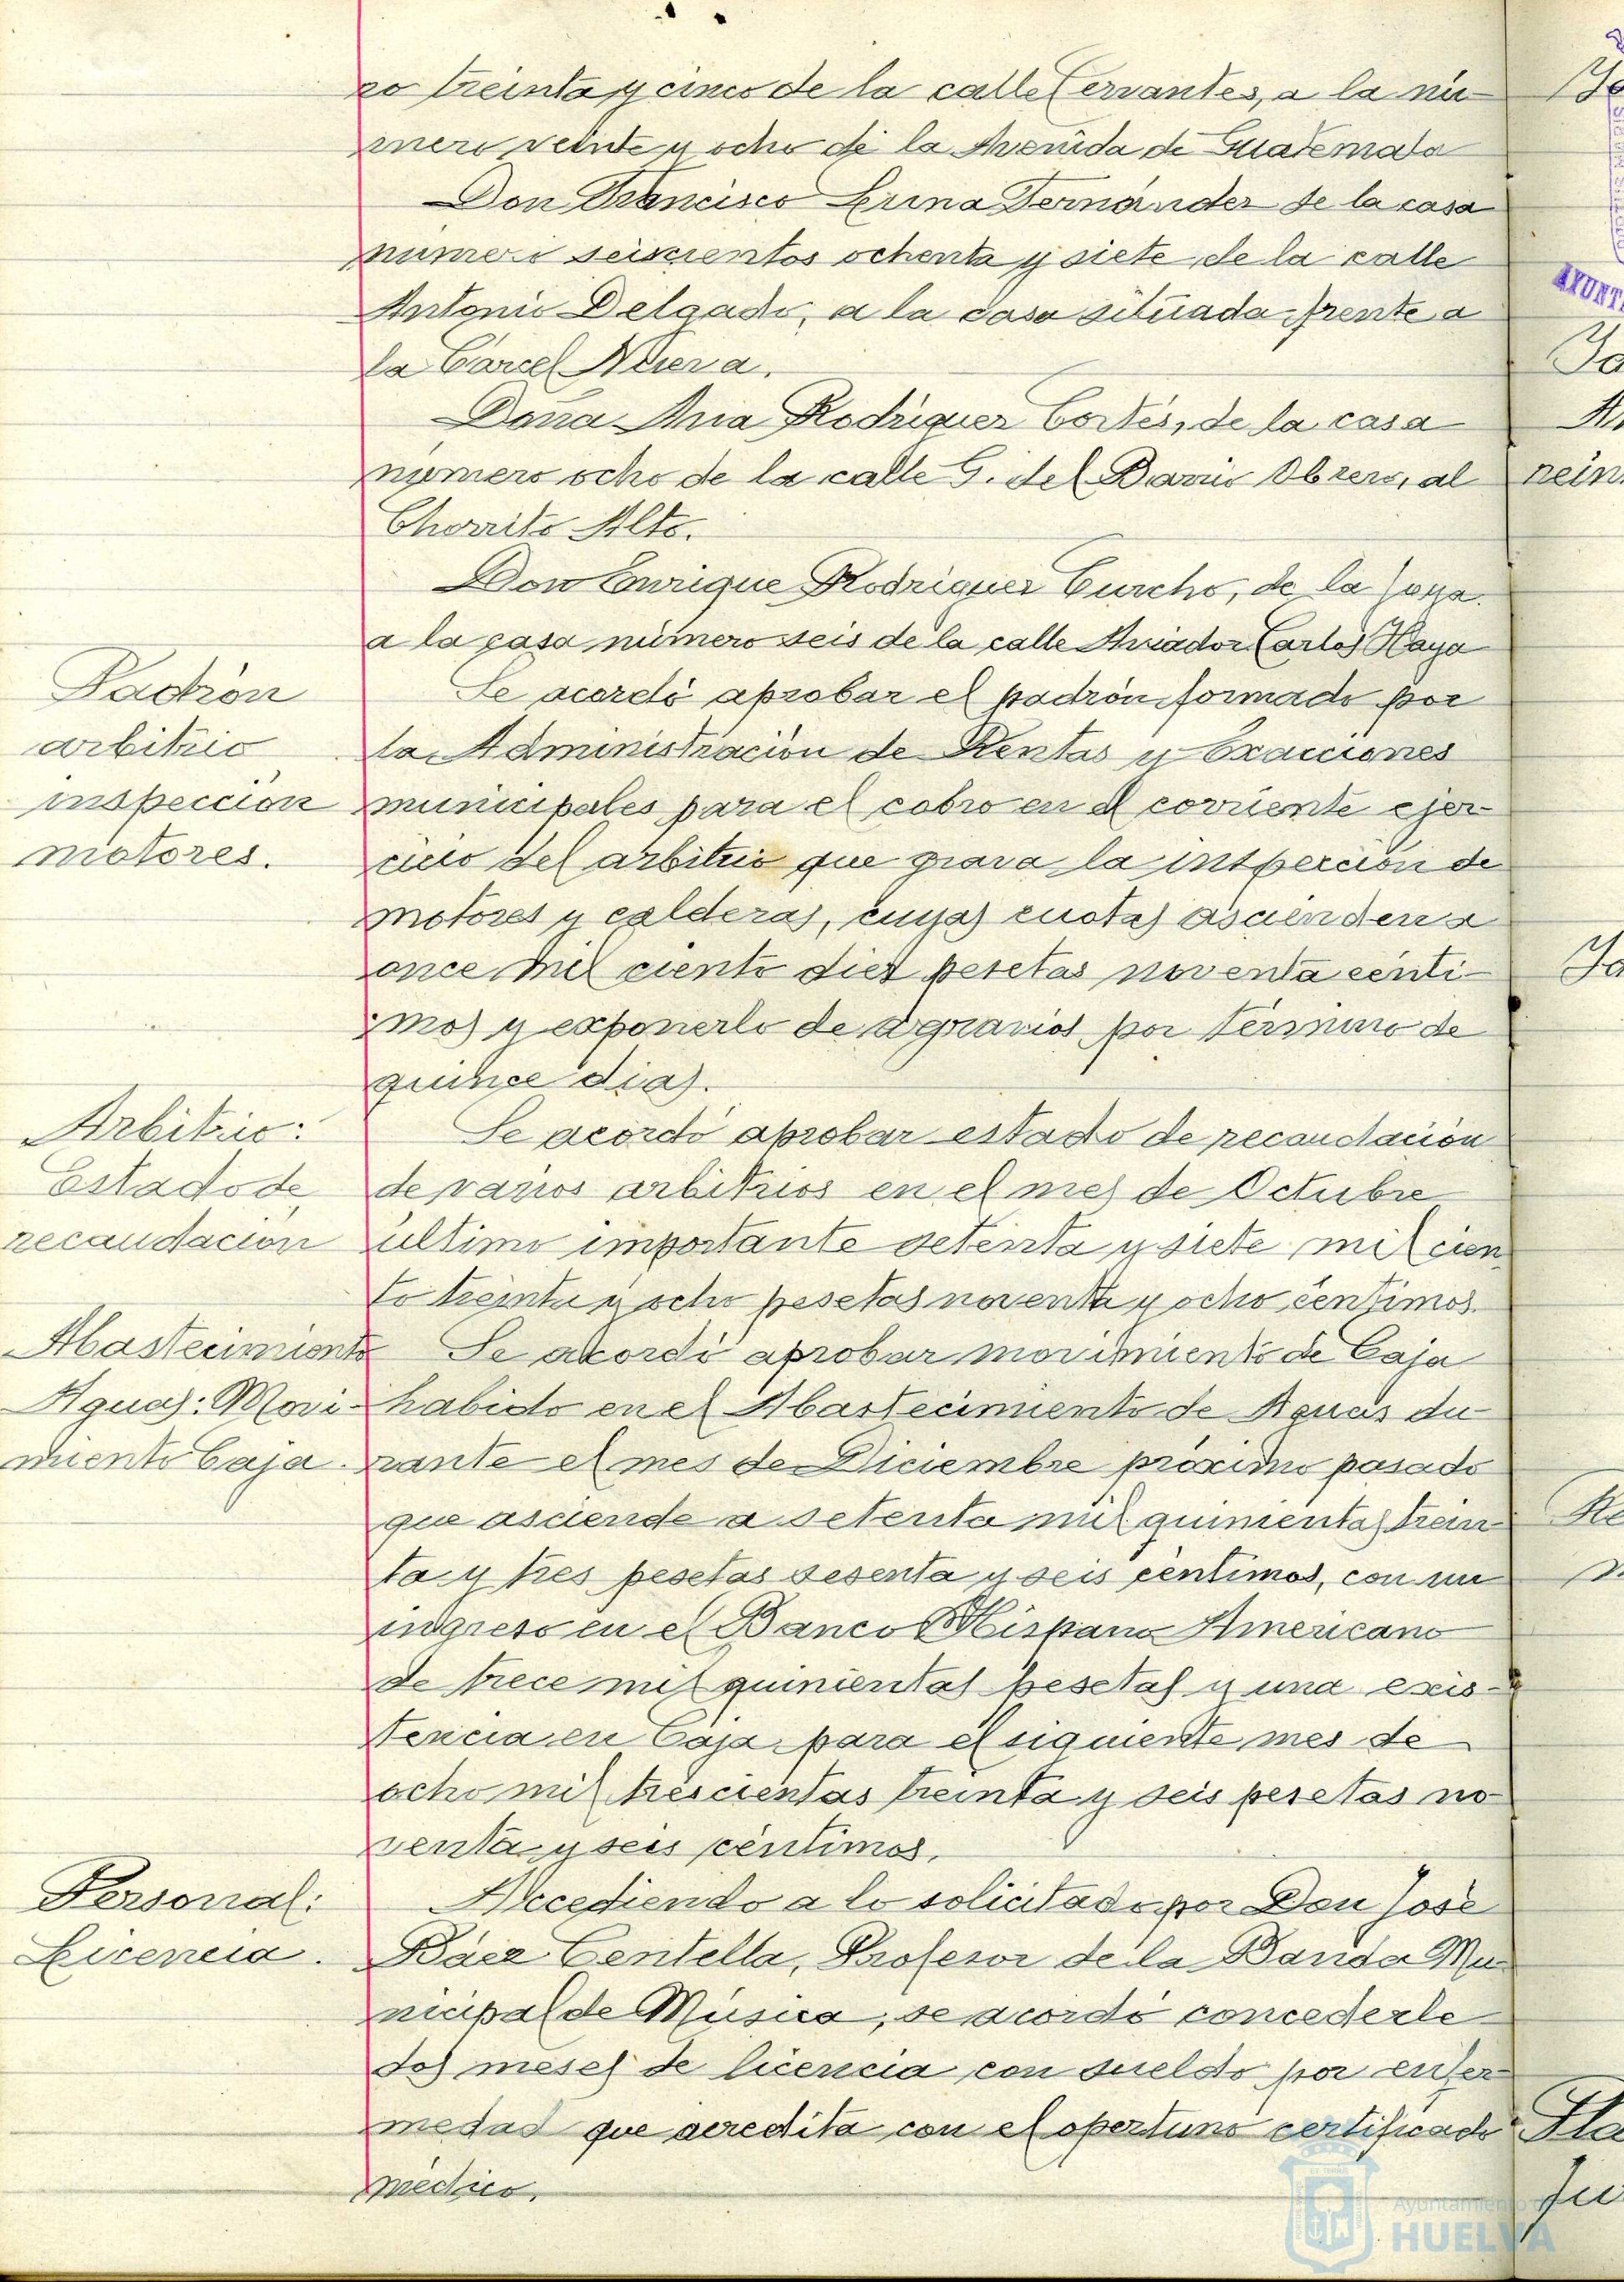 ro treinta y cinco de la calle Cervantes, a la nú-
mero veinte y ocho de la Avenida de Guatemala
Don Francisco Luna Fernández de la casa
número seiscientos ochenta y siete de la calle
Antonio Delgado, a la casa situada frente a
la Carcel Nueva.
Doña Ana Rodriguez Cortés, de la casa
número ocho de la calle G. del Barrio Obrero, al
Chorrito Alto.
Don Enrique Rodriguez Curcho, de la Joya
a la casa número seis de la calle Aviador Carlos Haya
Padrón
arbitrio
inspección
motores.
Se acordó aprobar el padrón formado por
la Administración de Rentas y Exacciones
municipales para el cobro en el corriente ejer-
cicio del arbitrio que grava la inspección de
motores y calderas, cuyas cuotas ascienden a
once mil ciento diez pesetas noventa centi-
mos y exponerlo de agravios por término de
quince dias.
Arbitrio:
Estado de
recaudación
Se acordó aprobar estado de recaudación
de varios arbitrios en el mes de Octubre
último importante setenta y siete mil cien
to treinta y ocho pesetas noventa y ocho céntimos.
Abastecimiento
Aguas: Movi-
miento Caja.
Se acordó aprobar movimiento de Caja
habido en el Abastecimiento de Aguas du-
rante el mes de Diciembre próximo pasado
que asciende a setenta mil quinientas trein-
ta y tres pesetas sesenta y seis céntimos, con un
ingreso en el Banco Hispano Americano
de trece mil quinientas pesetas y una exis-
tencia en Caja para el siguiente mes de
ocho mil trescientas treinta y seis pesetas no
venta y seis céntimos.
Personal:
Licencia.
Accediendo a lo solicitado por Don José
Báez Centella, Profesor de la Banda Mu
nicipal de Música, se acordó concederle
dos meses de licencia con sueldo por enfer-
medad que acredita con el oportuno certificado
médico.
Ayuntamiento de
HUELVA